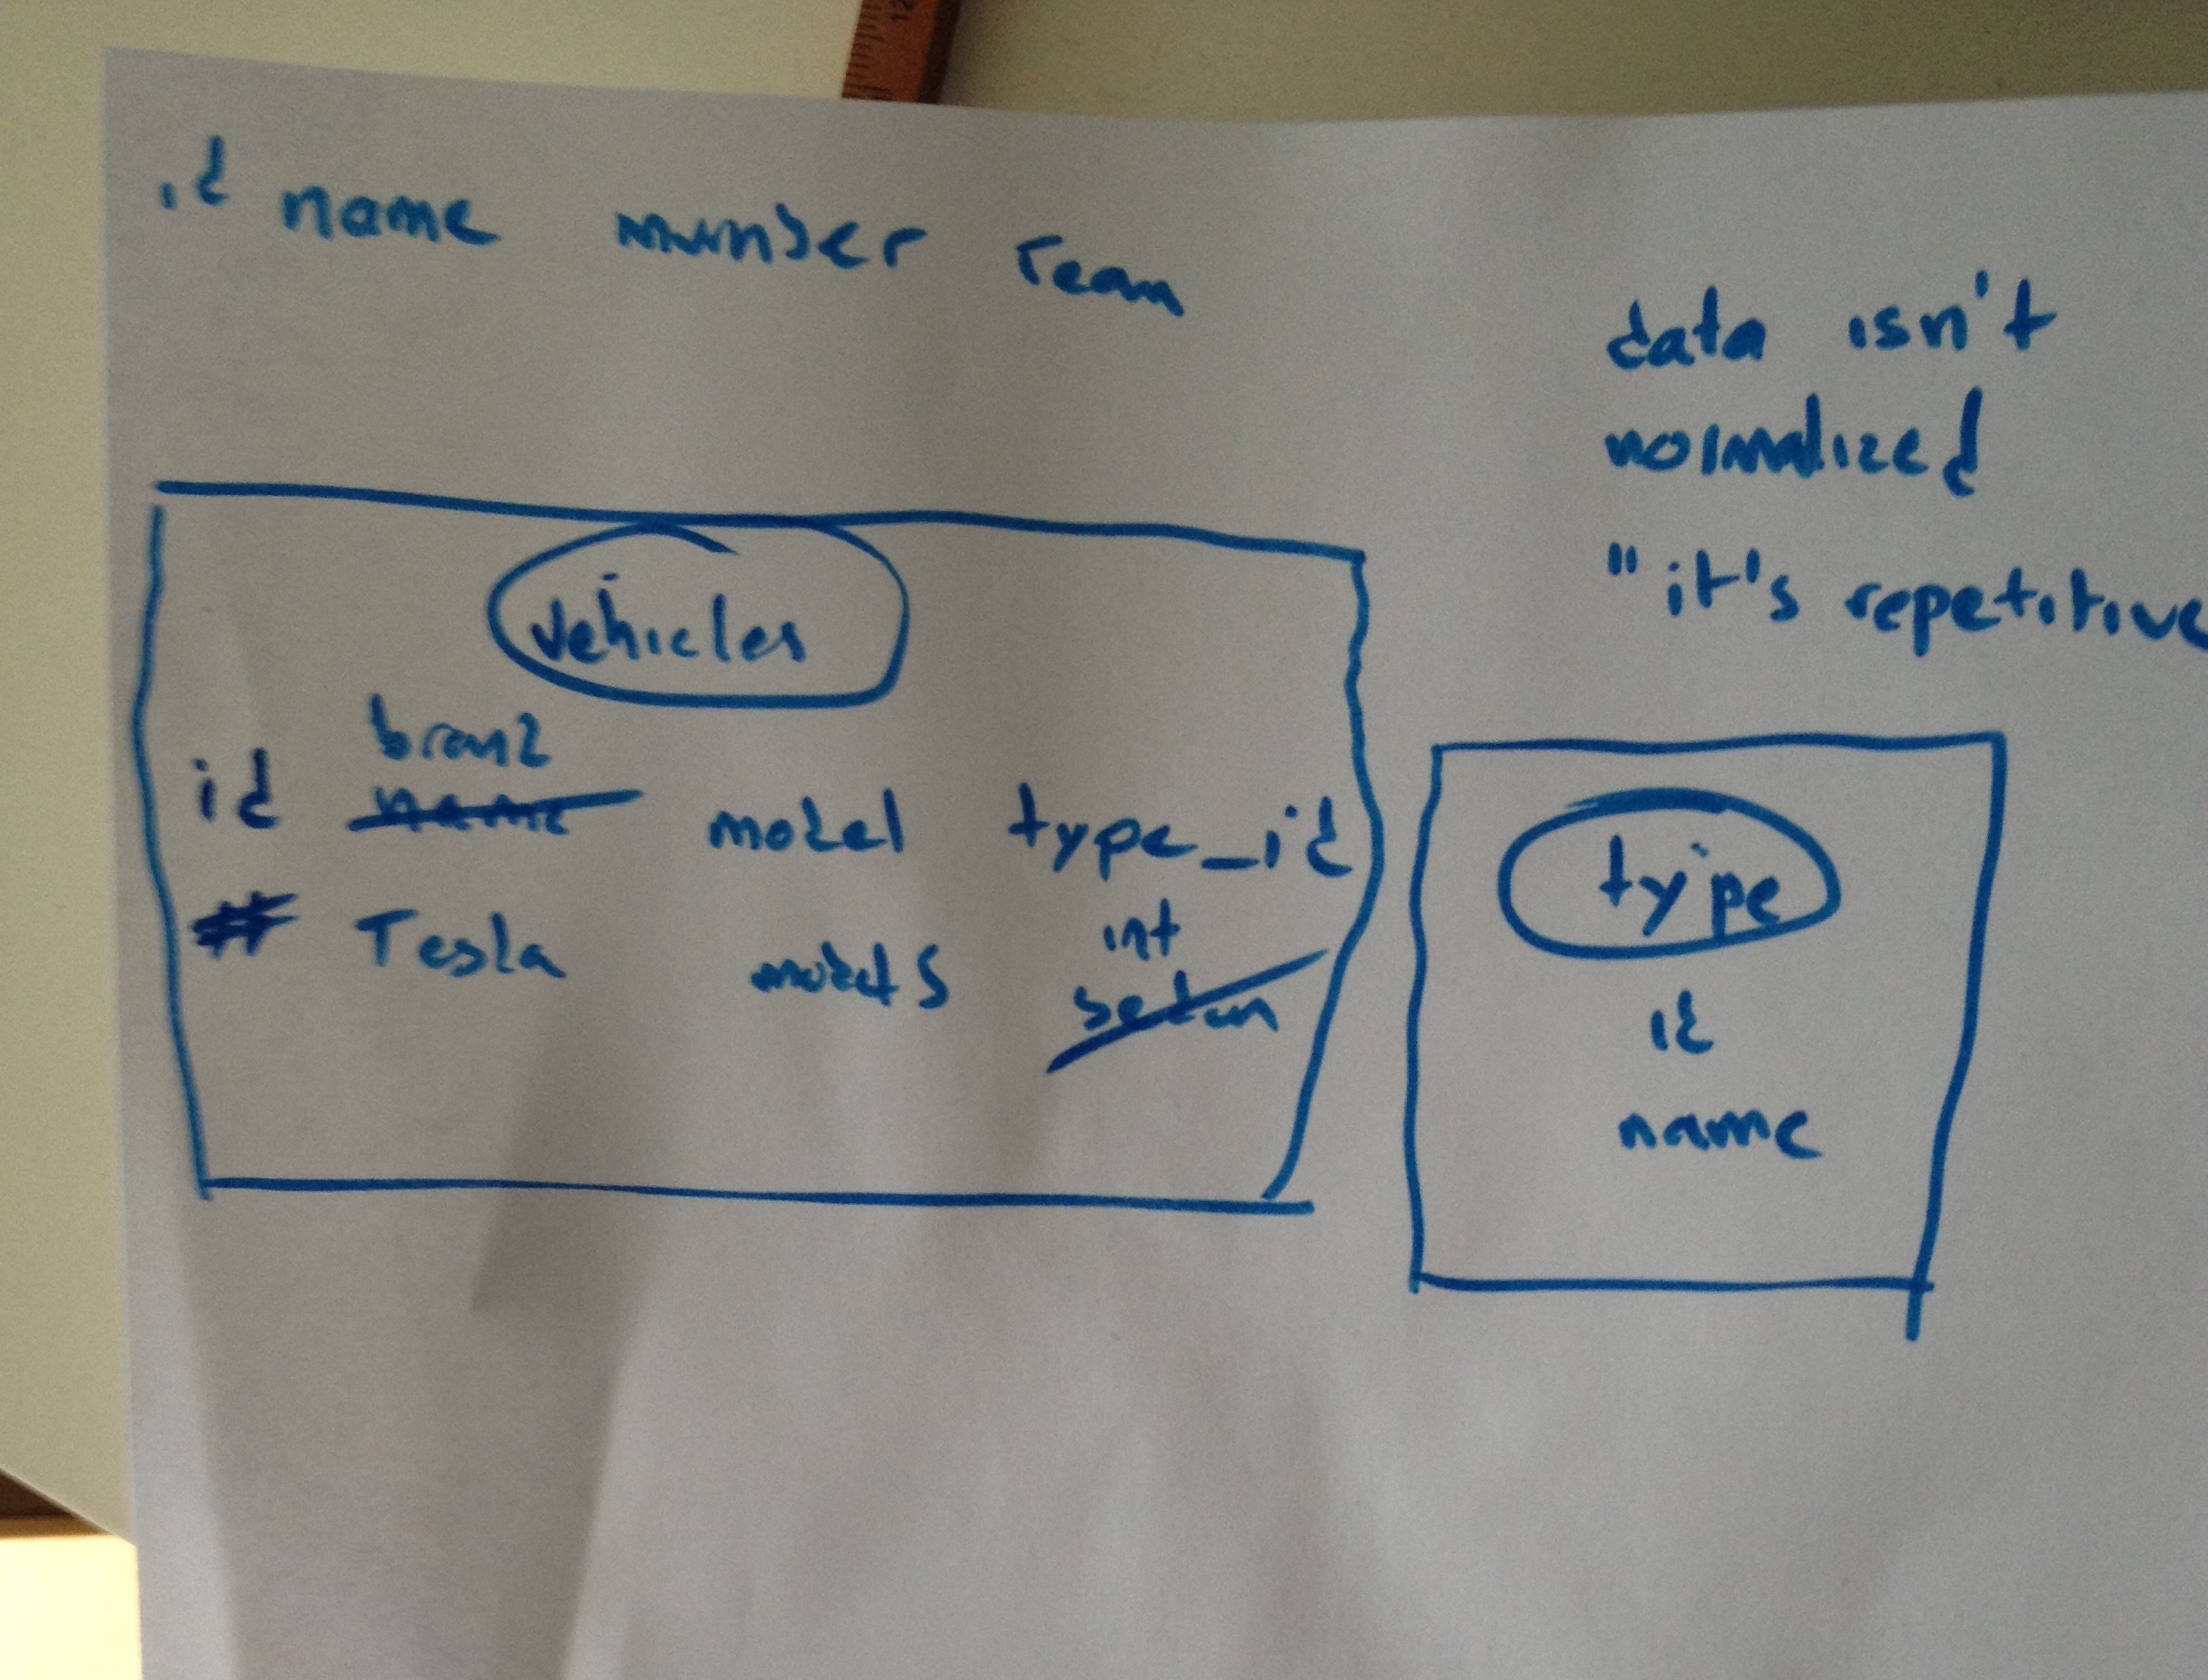 12
id name number Team
data isn't
normalized
"it's repetitive
vehicles
brand
id name model type_id
# Tesla model S int
sedan
type
id
name